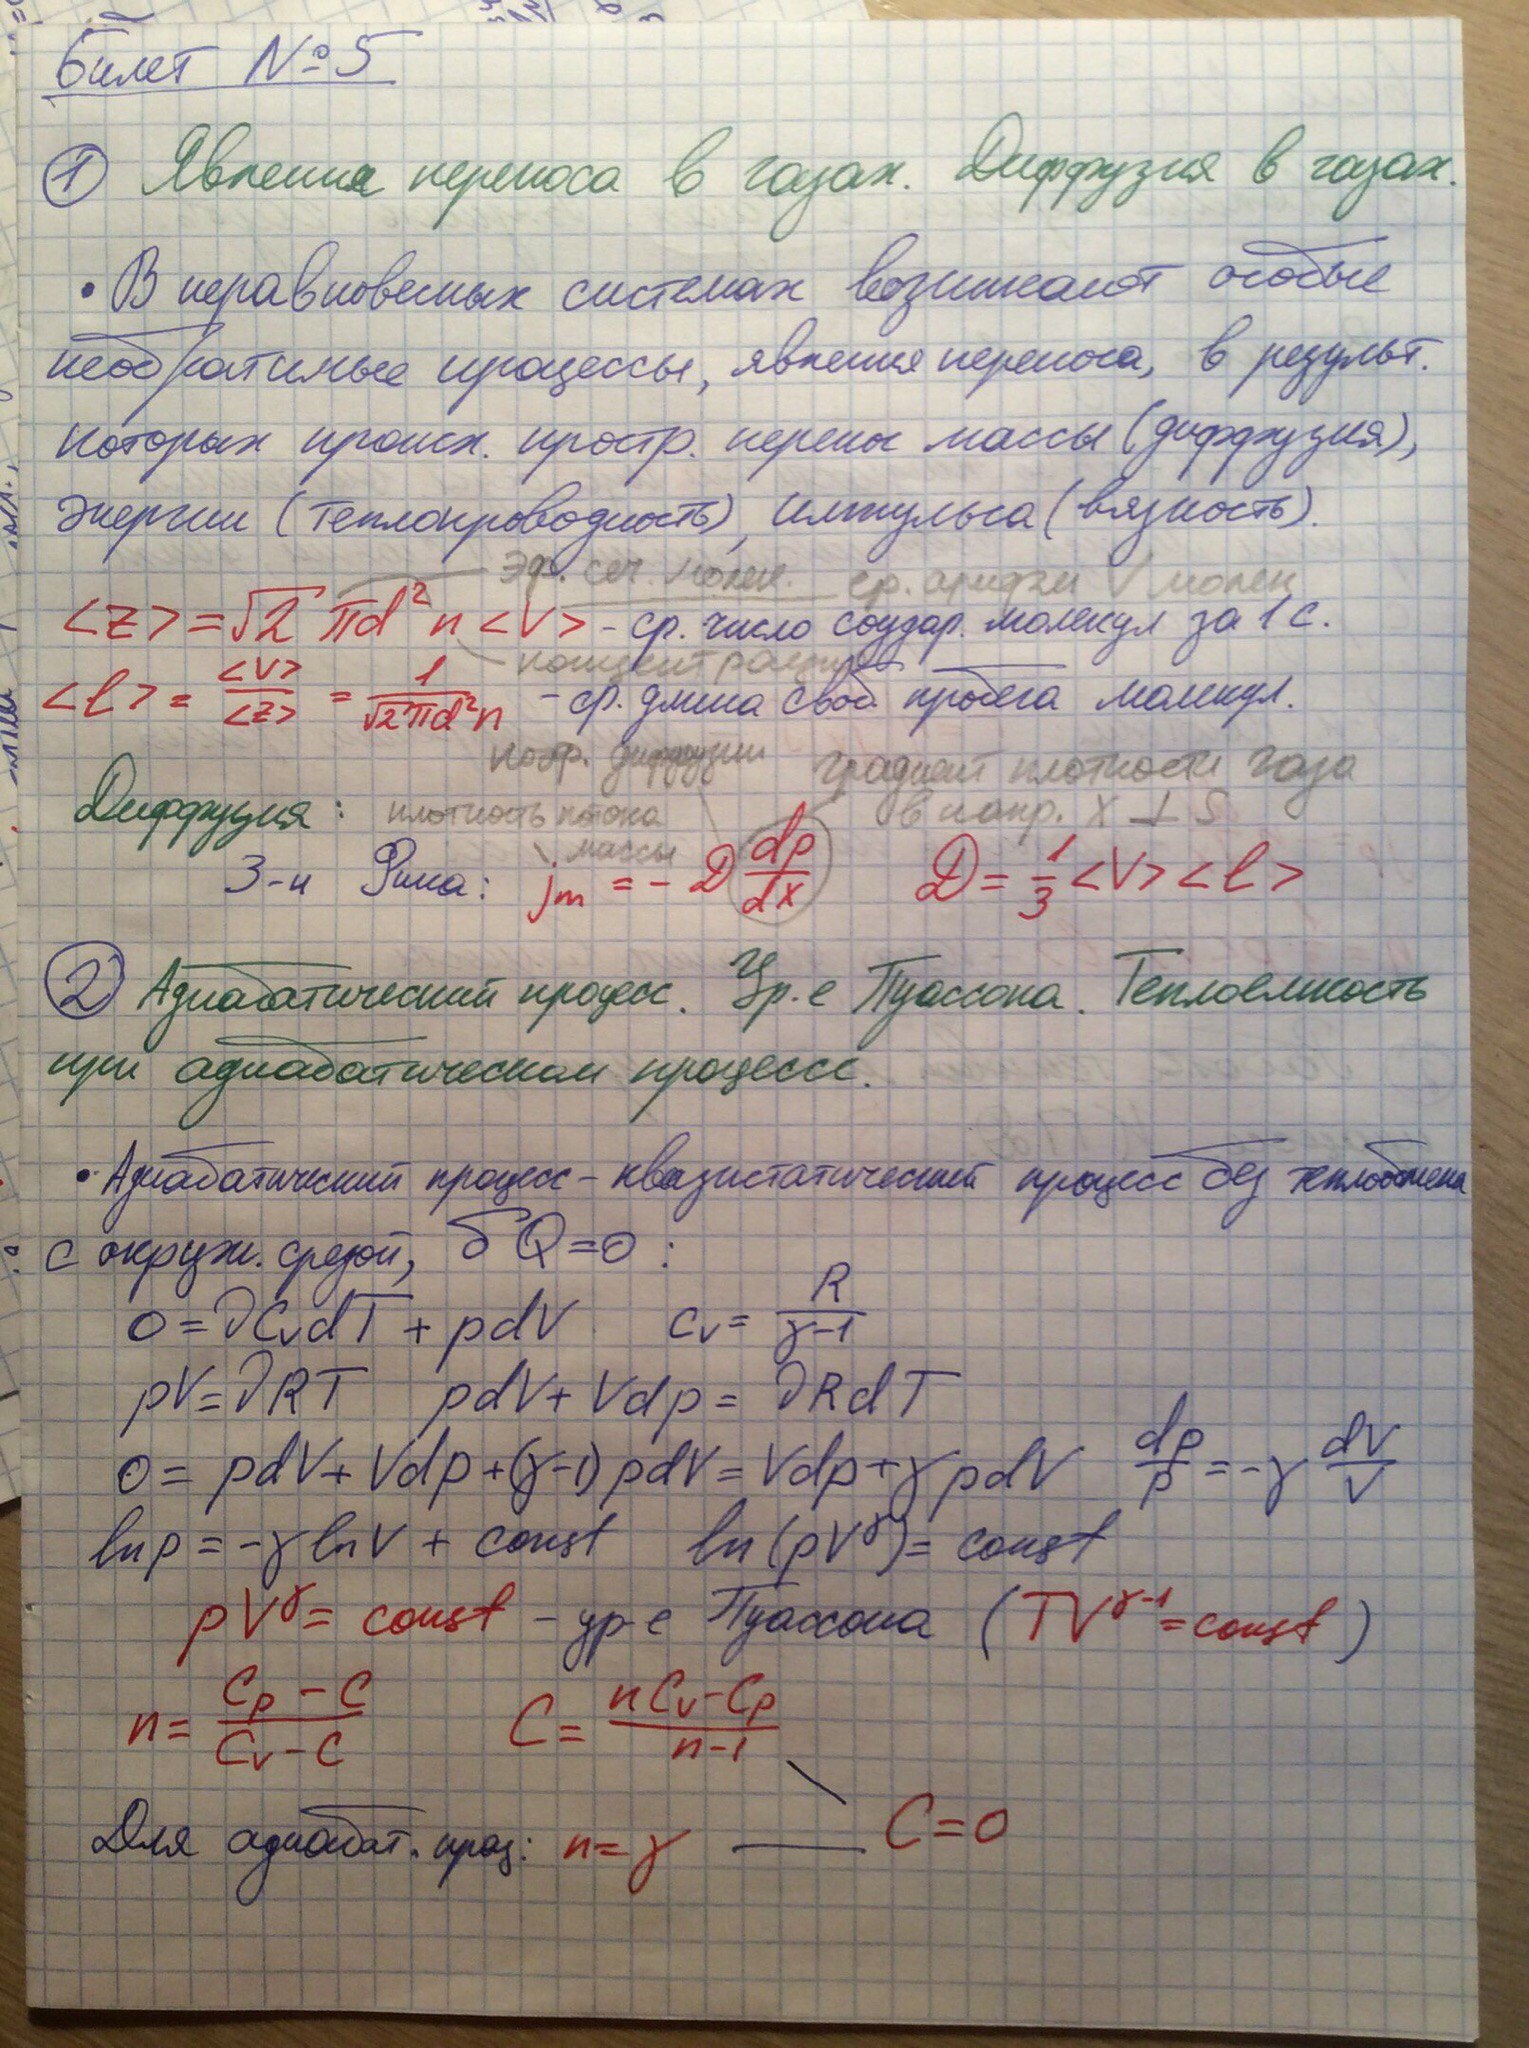 Билет №5
① Явления переноса в газах. Диффузия в газах.
• В неравновесных системах возникают особые
необратимые процессы, явления переноса, в результ.
которых происх. простр. перенос массы (диффузия),
энергии (теплопроводность), импульса (вязкость).
эф. сеч. молек. ср. арифм V молек
<z> = √2 πd²n <V> - ср. число соудар. молекул за 1 с.
концентрация
<l> = <V>/<z> = 1/(√2 πd²n) - ср. длина своб. пробега молекул.
коэф. диффузии градиент плотности газа
Диффузия: плотность потока в напр. X ⊥ S
массы
З-н Фика: jm = - D dρ/dx D = 1/3 <V> <l>
② Адиабатический процесс. Ур-е Пуассона. Теплоемкость
при адиабатическом процессе.
• Адиабатический процесс - квазистатический процесс без теплообмена
с окруж. средой, δQ = 0 :
0 = νCvdT + pdV Cv = R/(γ-1)
pV = νRT pdV + Vdp = νRdT
0 = pdV + Vdp + (γ-1)pdV = Vdp + γpdV dp/p = -γ dV/V
ln p = -γ ln V + const ln(pV^γ) = const
pV^γ = const - ур-е Пуассона (TV^(γ-1) = const)
n = (Cp - C)/(Cv - C) C = (nCv - Cp)/(n-1)
Для адиабат. проц: n = γ — C = 0